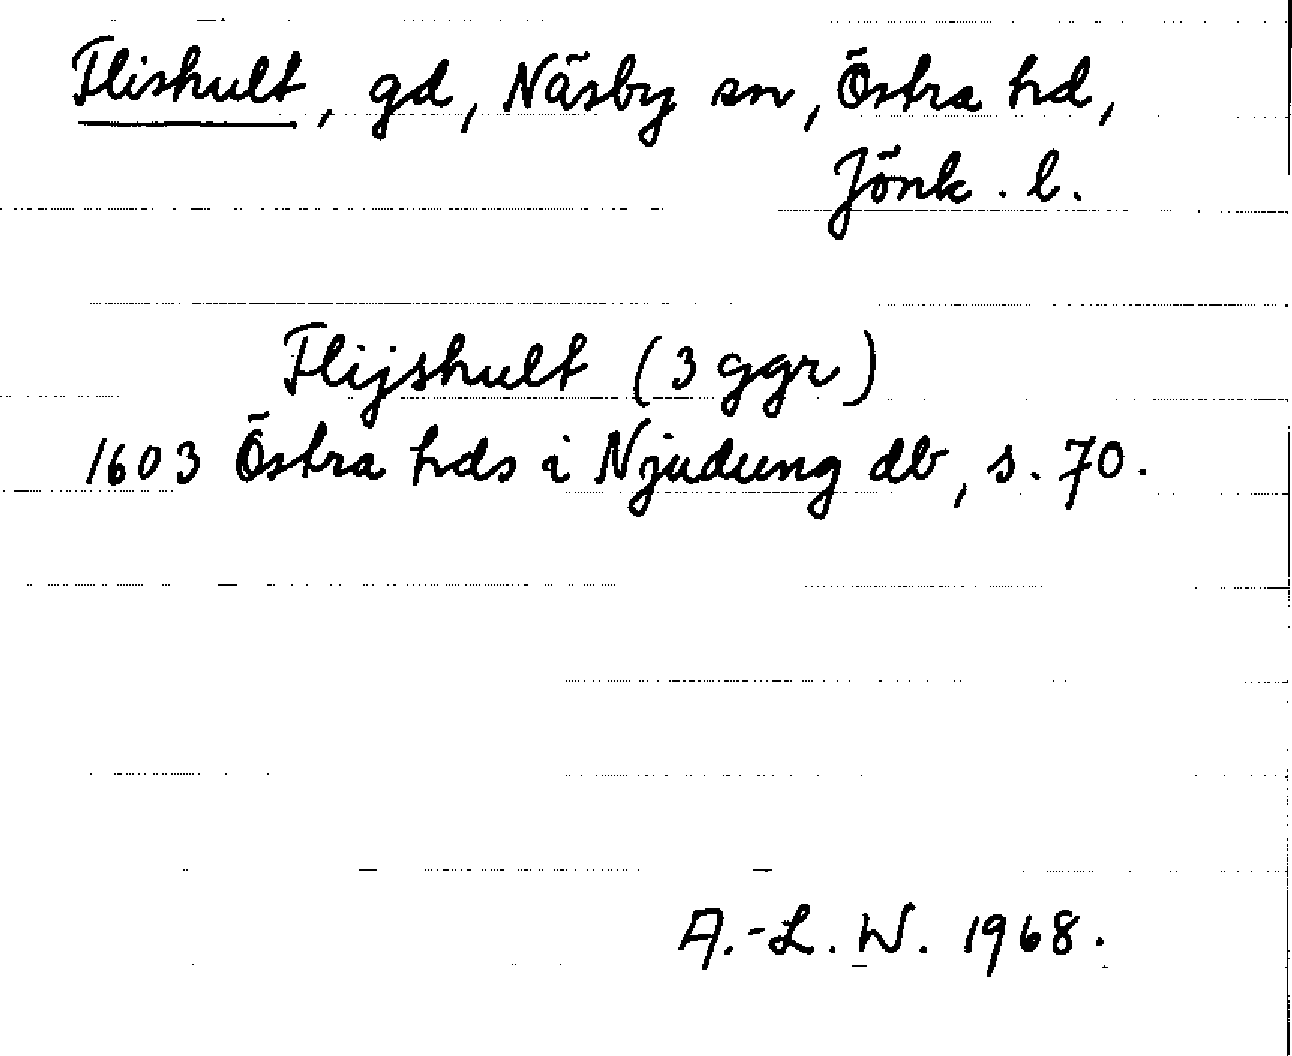 Flishult, gd, Näsby sn, Östra hd,
Jönk. l.
Flijshult (3 ggr)
1603 Östra hds i Njudung db, s. 70.
A.-L. W. 1968.